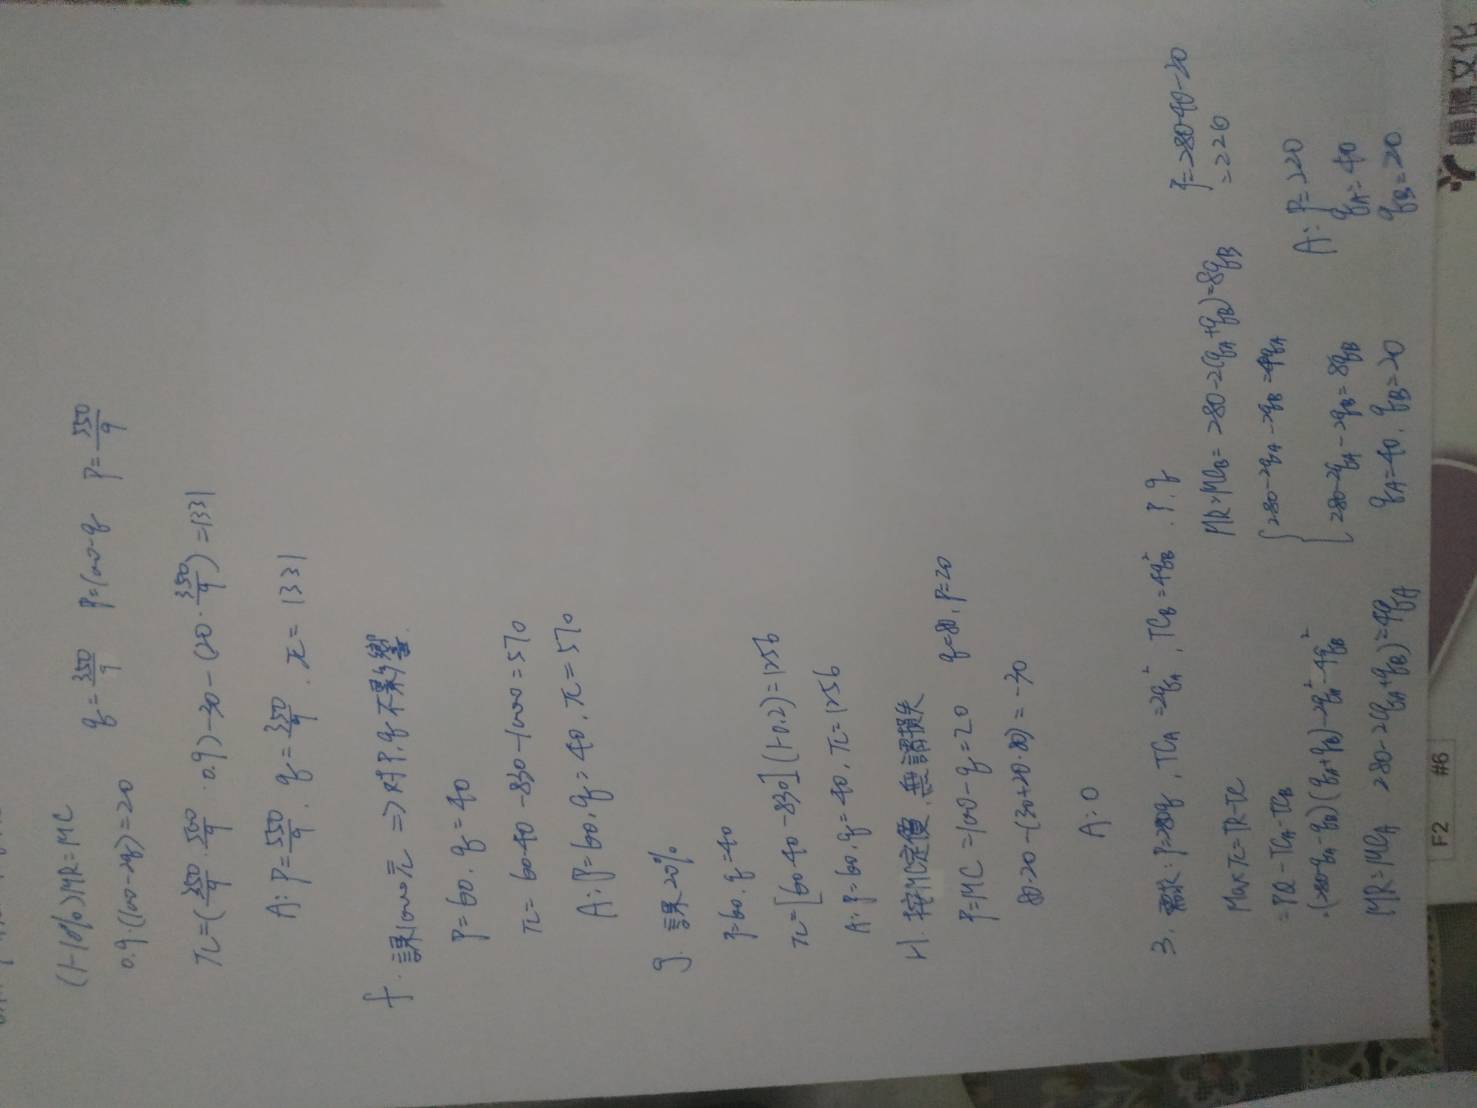 (1-10%)MR=MC
0.9·(100-2q)=20
q=350/9 P=100-q P=550/9
π=(350/9·550/9·0.9)-30-(20·350/9)=1331
A: P=550/9, q=350/9, π=1331
f. 課1000元 => 對P,q不影響
P=60, q=40
π=60·40-830-1000=570
A: P=60, q=40, π=570
g. 課20%
P=60, q=40
π=[60·40-830](1-0.2)=1256
A: P=60, q=40, π=1256
H. 按MC定價, 無謂損失
P=MC=100-q=20 q=80, P=20
80·20-(30+20·80)=-30
A: 0
3. 需求: P=280-q, TCA=2qA², TCB=4qB², P, q
Max π=TR-TC
=PQ-TCA-TCB
=(280-qA-qB)(qA+qB)-2qA²-4qB²
MR=MCA 280-2(qA+qB)=4qA
MR=MCB=280-2(qA+qB)=8qB
280-2qA-2qB=4qA
280-2qA-2qB=8qB
qA=40, qB=20
P=280-40-20
=220
A: P=220
qA=40
qB=20
F2 #6
龍騰文化